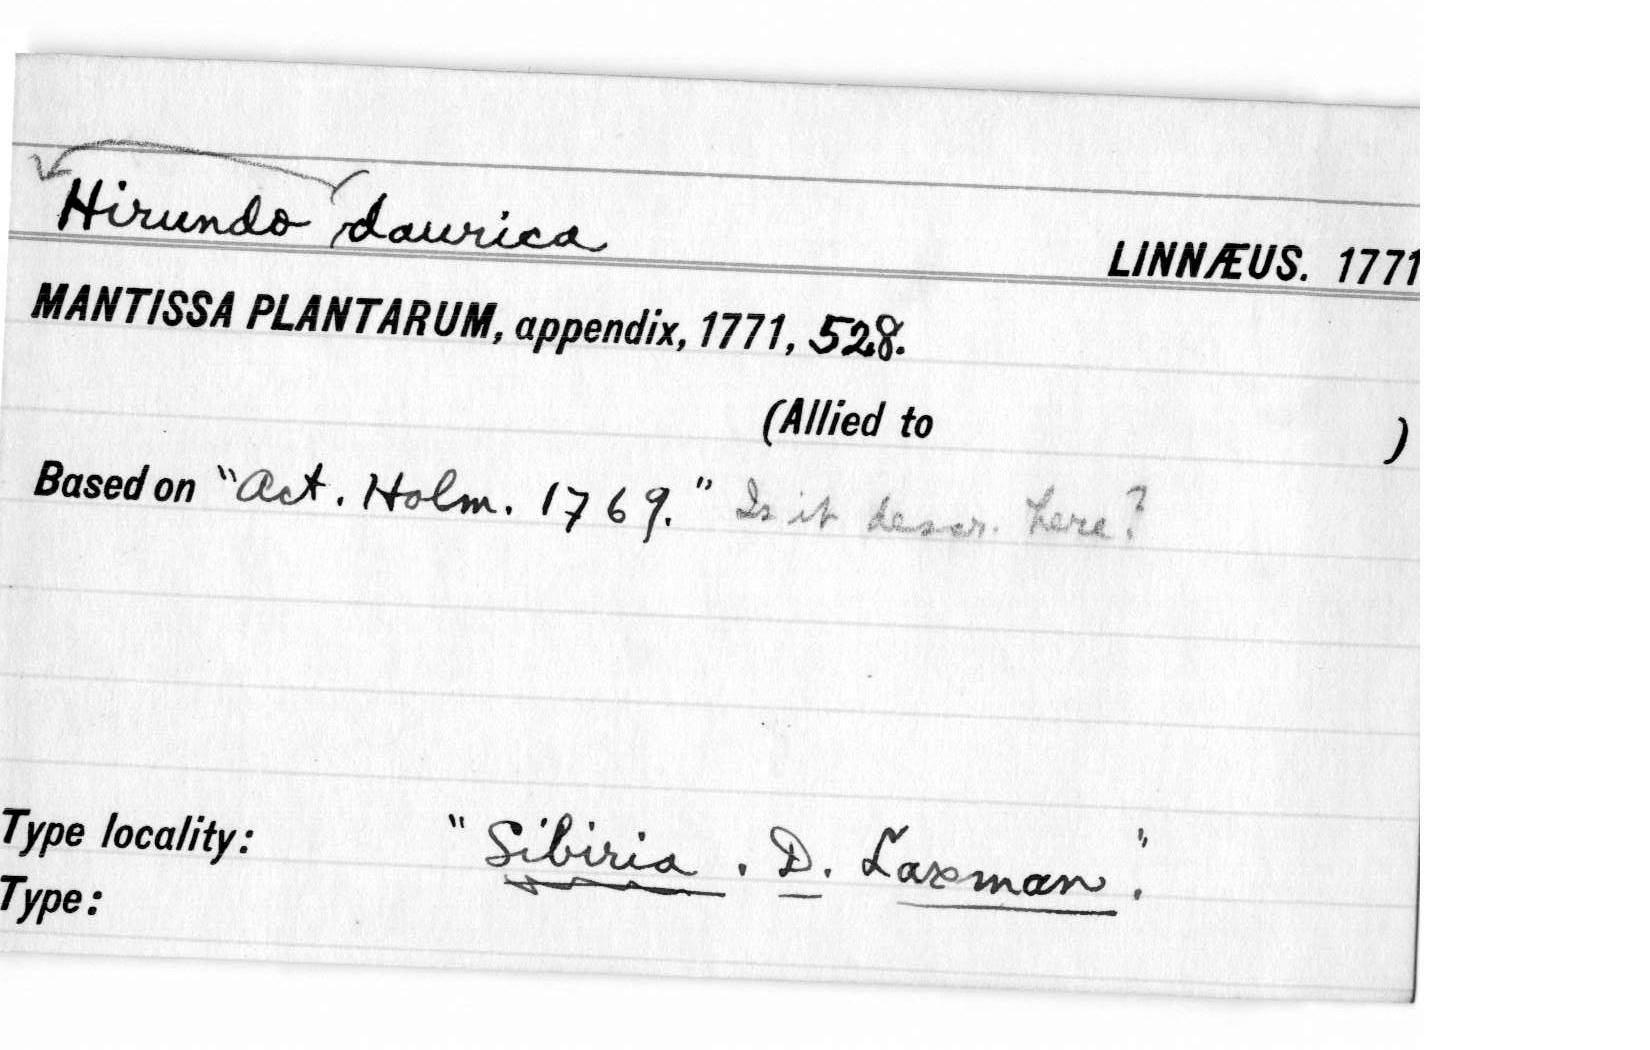 Hirundo daurica
LINNÆUS. 1771
MANTISSA PLANTARUM, appendix, 1771, 528.
(Allied to )
Based on "Act. Holm. 1769." Is it descr. here?
Type locality: "Sibiria. D. Laxman."
Type: